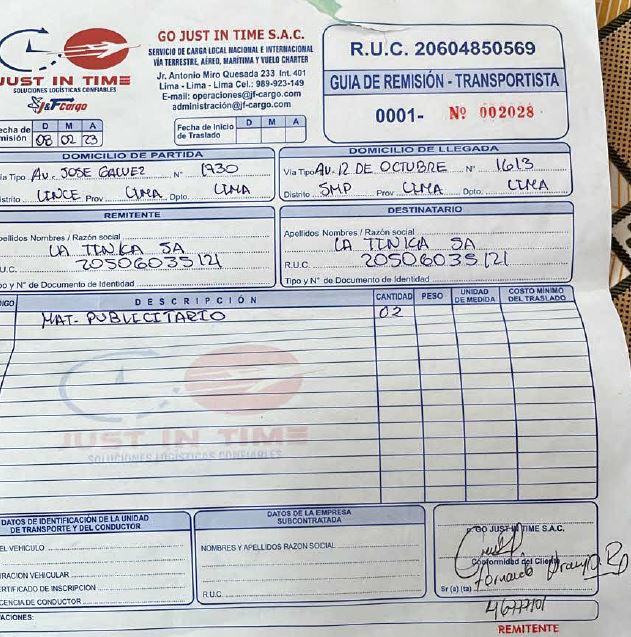 JUST IN TIME
SOLUCIONES LOGÍSTICAS CONFIABLES
J&F Cargo
GO JUST IN TIME S.A.C.
SERVICIO DE CARGA LOCAL NACIONAL E INTERNACIONAL
VÍA TERRESTRE, AÉREO, MARÍTIMA Y VUELO CHARTER
Jr. Antonio Miro Quesada 233 Int. 401
Lima - Lima - Lima Cel.: 989-923-149
E-mail: operaciones@jf-cargo.com
administración@jf-cargo.com
R.U.C. 20604850569
GUIA DE REMISIÓN - TRANSPORTISTA
0001- Nº 002028
echa de misión D M A
08 02 23
Fecha de Inicio de Traslado D M A
DOMICILIO DE PARTIDA
Vía Tipo AV. JOSE GALVEZ Nº 1930
istrito LINCE Prov LIMA Dpto. LIMA
DOMICILIO DE LLEGADA
Vía Tipo AV. 12 DE OCTUBRE Nº 1613
Distrito SMP Prov LIMA Dpto. LIMA
REMITENTE
pellidos Nombres / Razón social
LA TINKA SA
U.C. 20506035121
po y N° de Documento de Identidad
DESTINATARIO
Apellidos Nombres / Razón social
LA TINKA SA
R.U.C. 20506035121
Tipo y N° de Documento de Identidad
DIGO DESCRIPCIÓN CANTIDAD PESO UNIDAD DE MEDIDA COSTO MÍNIMO DEL TRASLADO
MAT. PUBLICITARIO 02
JUST IN TIME
SOLUCIONES LOGÍSTICAS CONFIABLES
DATOS DE IDENTIFICACIÓN DE LA UNIDAD DE TRANSPORTE Y DEL CONDUCTOR
EL VEHICULO
RACION VEHICULAR
ERTIFICADO DE INSCRIPCION
CENCIA DE CONDUCTOR
DATOS DE LA EMPRESA SUBCONTRATADA
NOMBRES Y APELLIDOS RAZON SOCIAL
R.U.C.
GO JUST IN TIME S.A.C.
Conformidad del Cliente
Fernando
Sr (a) (ta)
VACIONES:
REMITENTE